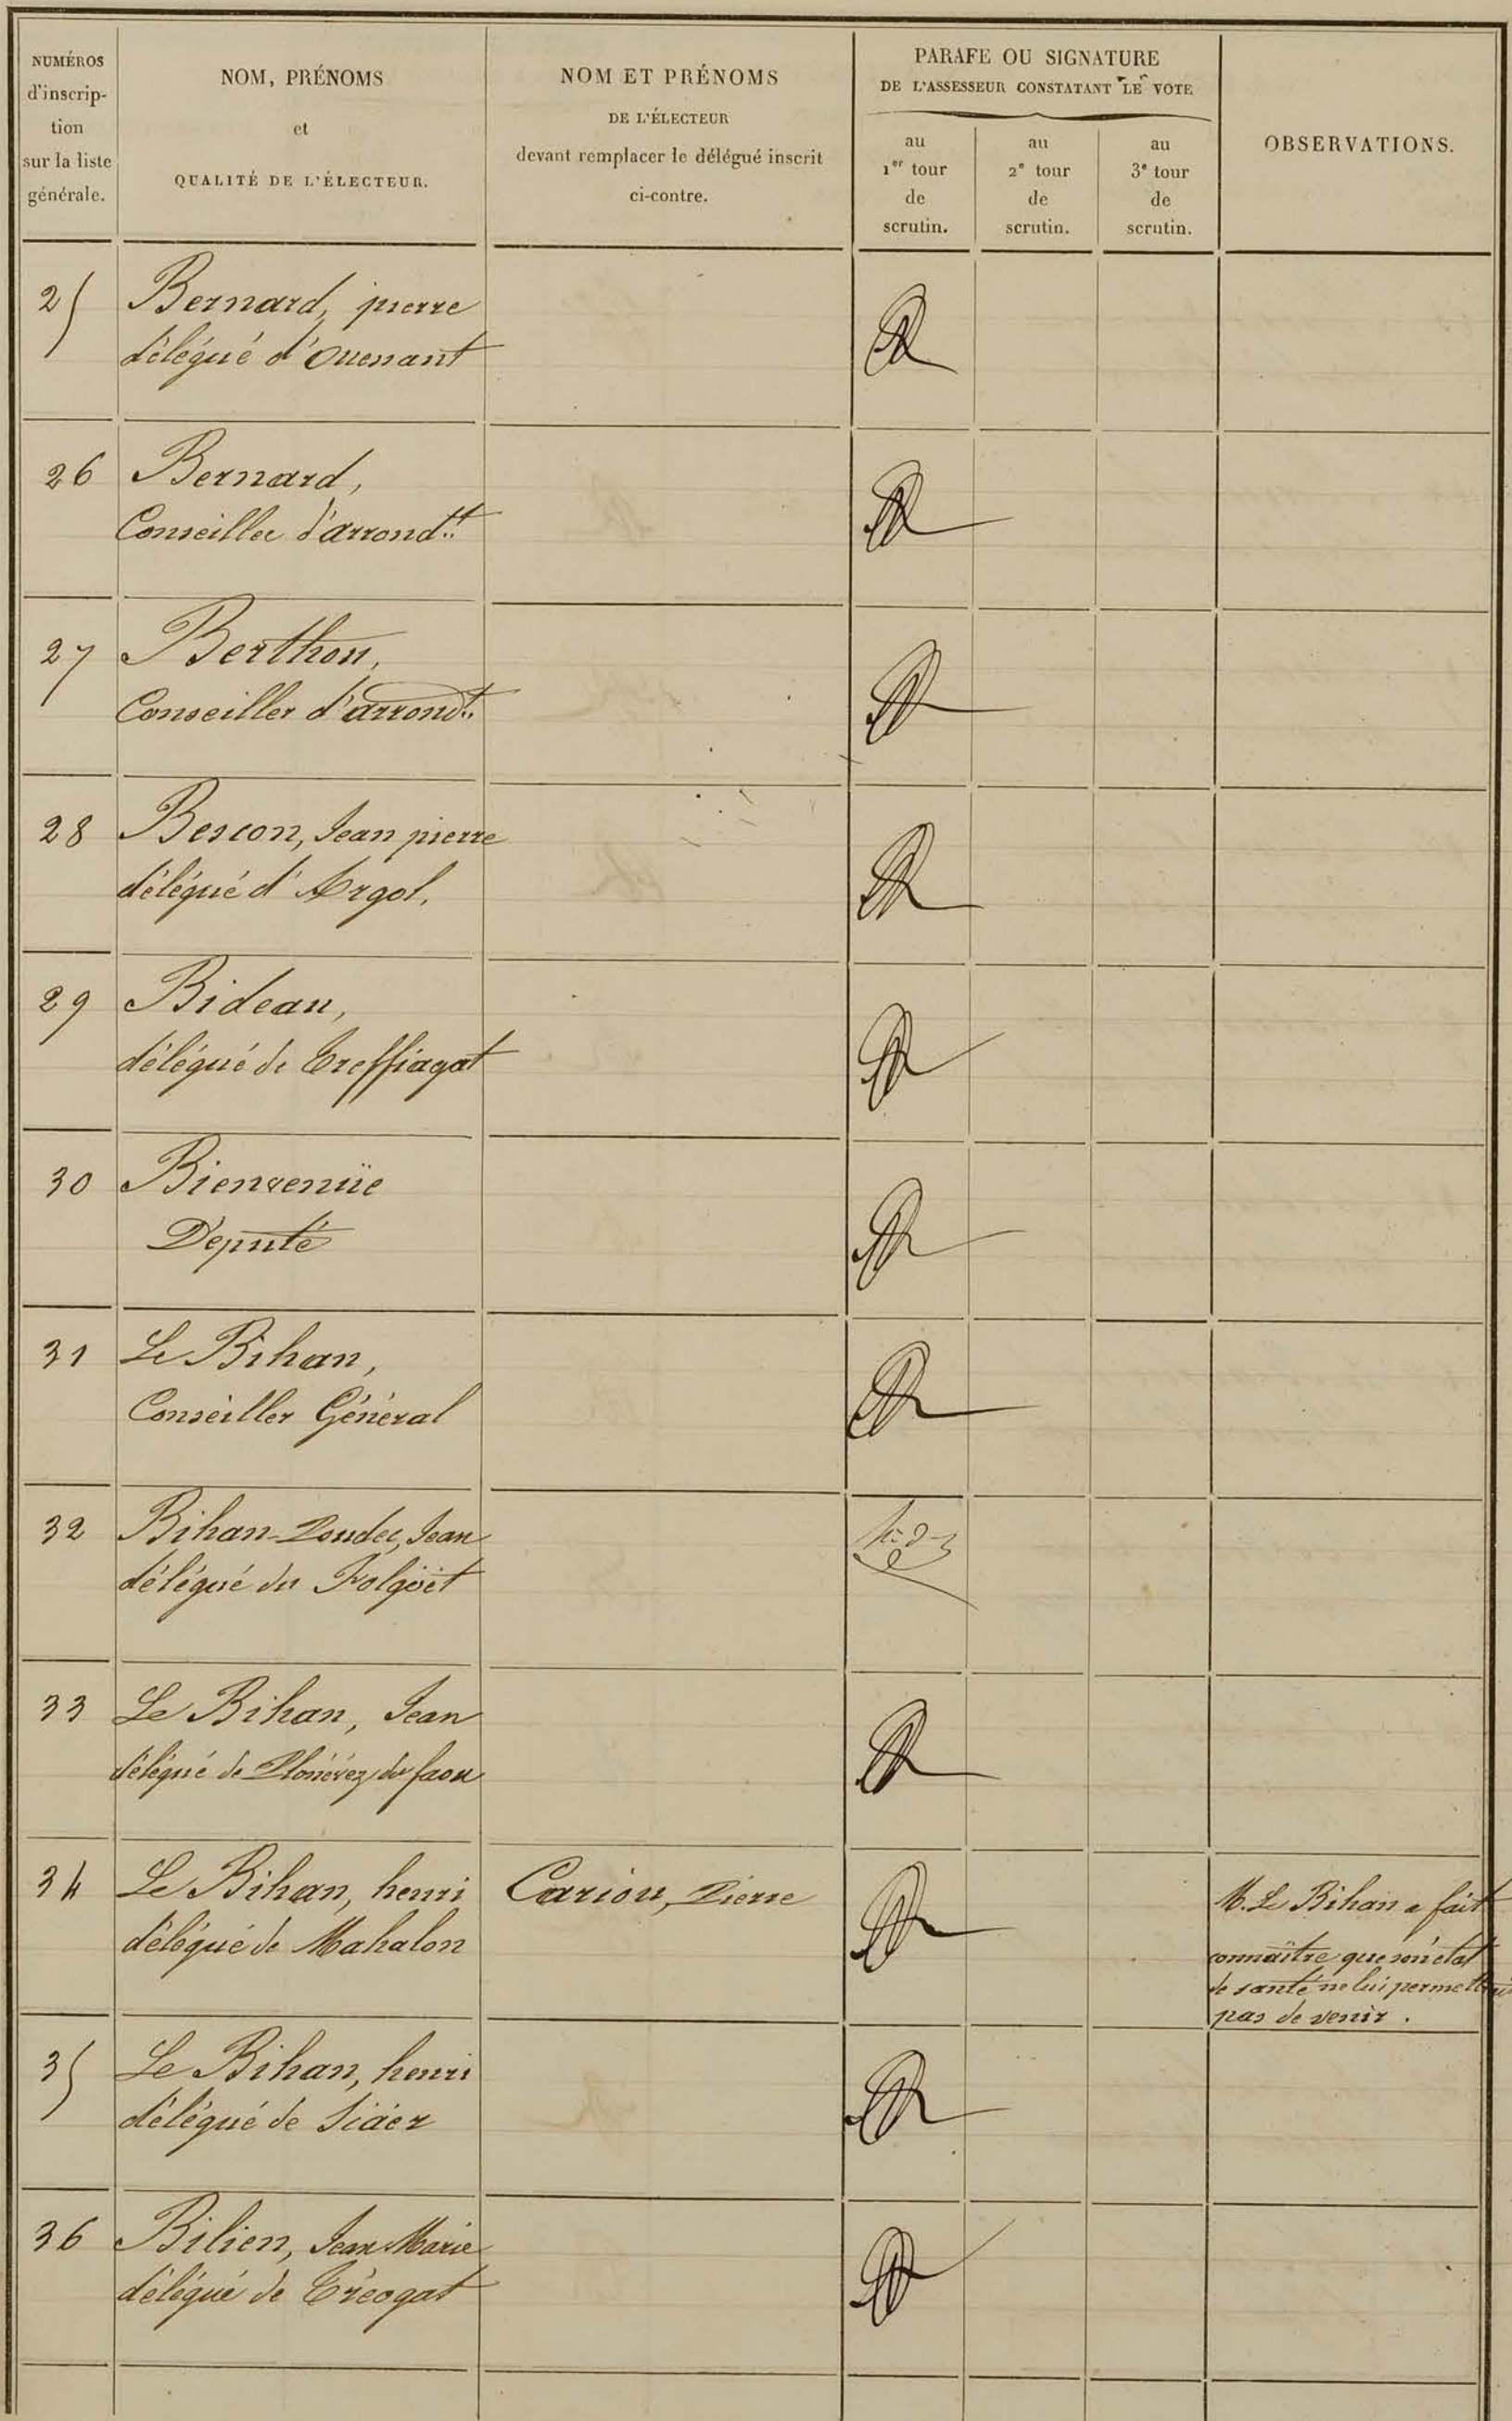 NUMÉROS
d'inscrip-
tion
sur la liste
générale.
NOM, PRÉNOMS
et
QUALITÉ DE L'ÉLECTEUR.
NOM ET PRÉNOMS
DE L'ÉLECTEUR
devant remplacer le délégué inscrit
ci-contre.
PARAFE OU SIGNATURE
DE L'ASSESSEUR CONSTATANT LE VOTE
au
1er tour
de
scrutin.
au
2e tour
de
scrutin.
au
3e tour
de
scrutin.
OBSERVATIONS.
25 Bernard, pierre
délégué d'Ouessant
26 Bernard,
Conseiller d'arrondt.
27 Berthou,
Conseiller d'arrondt.
28 Bescon, Jean pierre
délégué d'Argol.
29 Bideau,
délégué de Treffiagat
30 Bienvenüe
Député
31 Le Bihan,
Conseiller Général
32 Bihan-Poudec, Jean
délégué du Folgoët
33 Le Bihan, Jean
délégué de Plonévez du faou
34 Le Bihan, henri Cariou, Pierre
délégué de Mahalon
M. Le Bihan a fait
connaître que son état
de santé ne lui permettrait
pas de venir.
35 Le Bihan, henri
délégué de Scaër
36 Bilien, Jean Marie
délégué de Tréogat